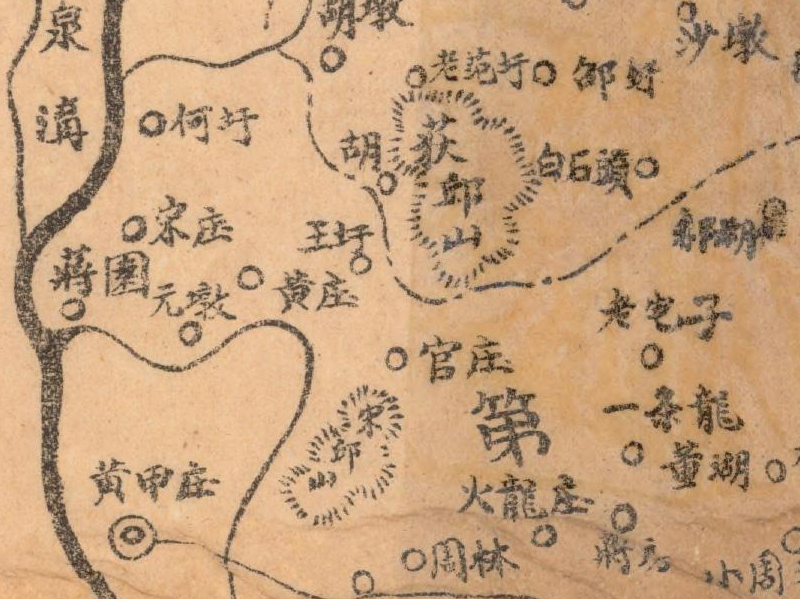 泉
胡墩
沙墩
老范圩
邵圩
何圩
荻邱山
胡
白石頭
宋庄
王圩
蔣園
元墩
黃庄
老宅子
官庄
一条龍
第
宋邱山
董湖
黃甲庄
火龍庄
周林
蔣房
小周